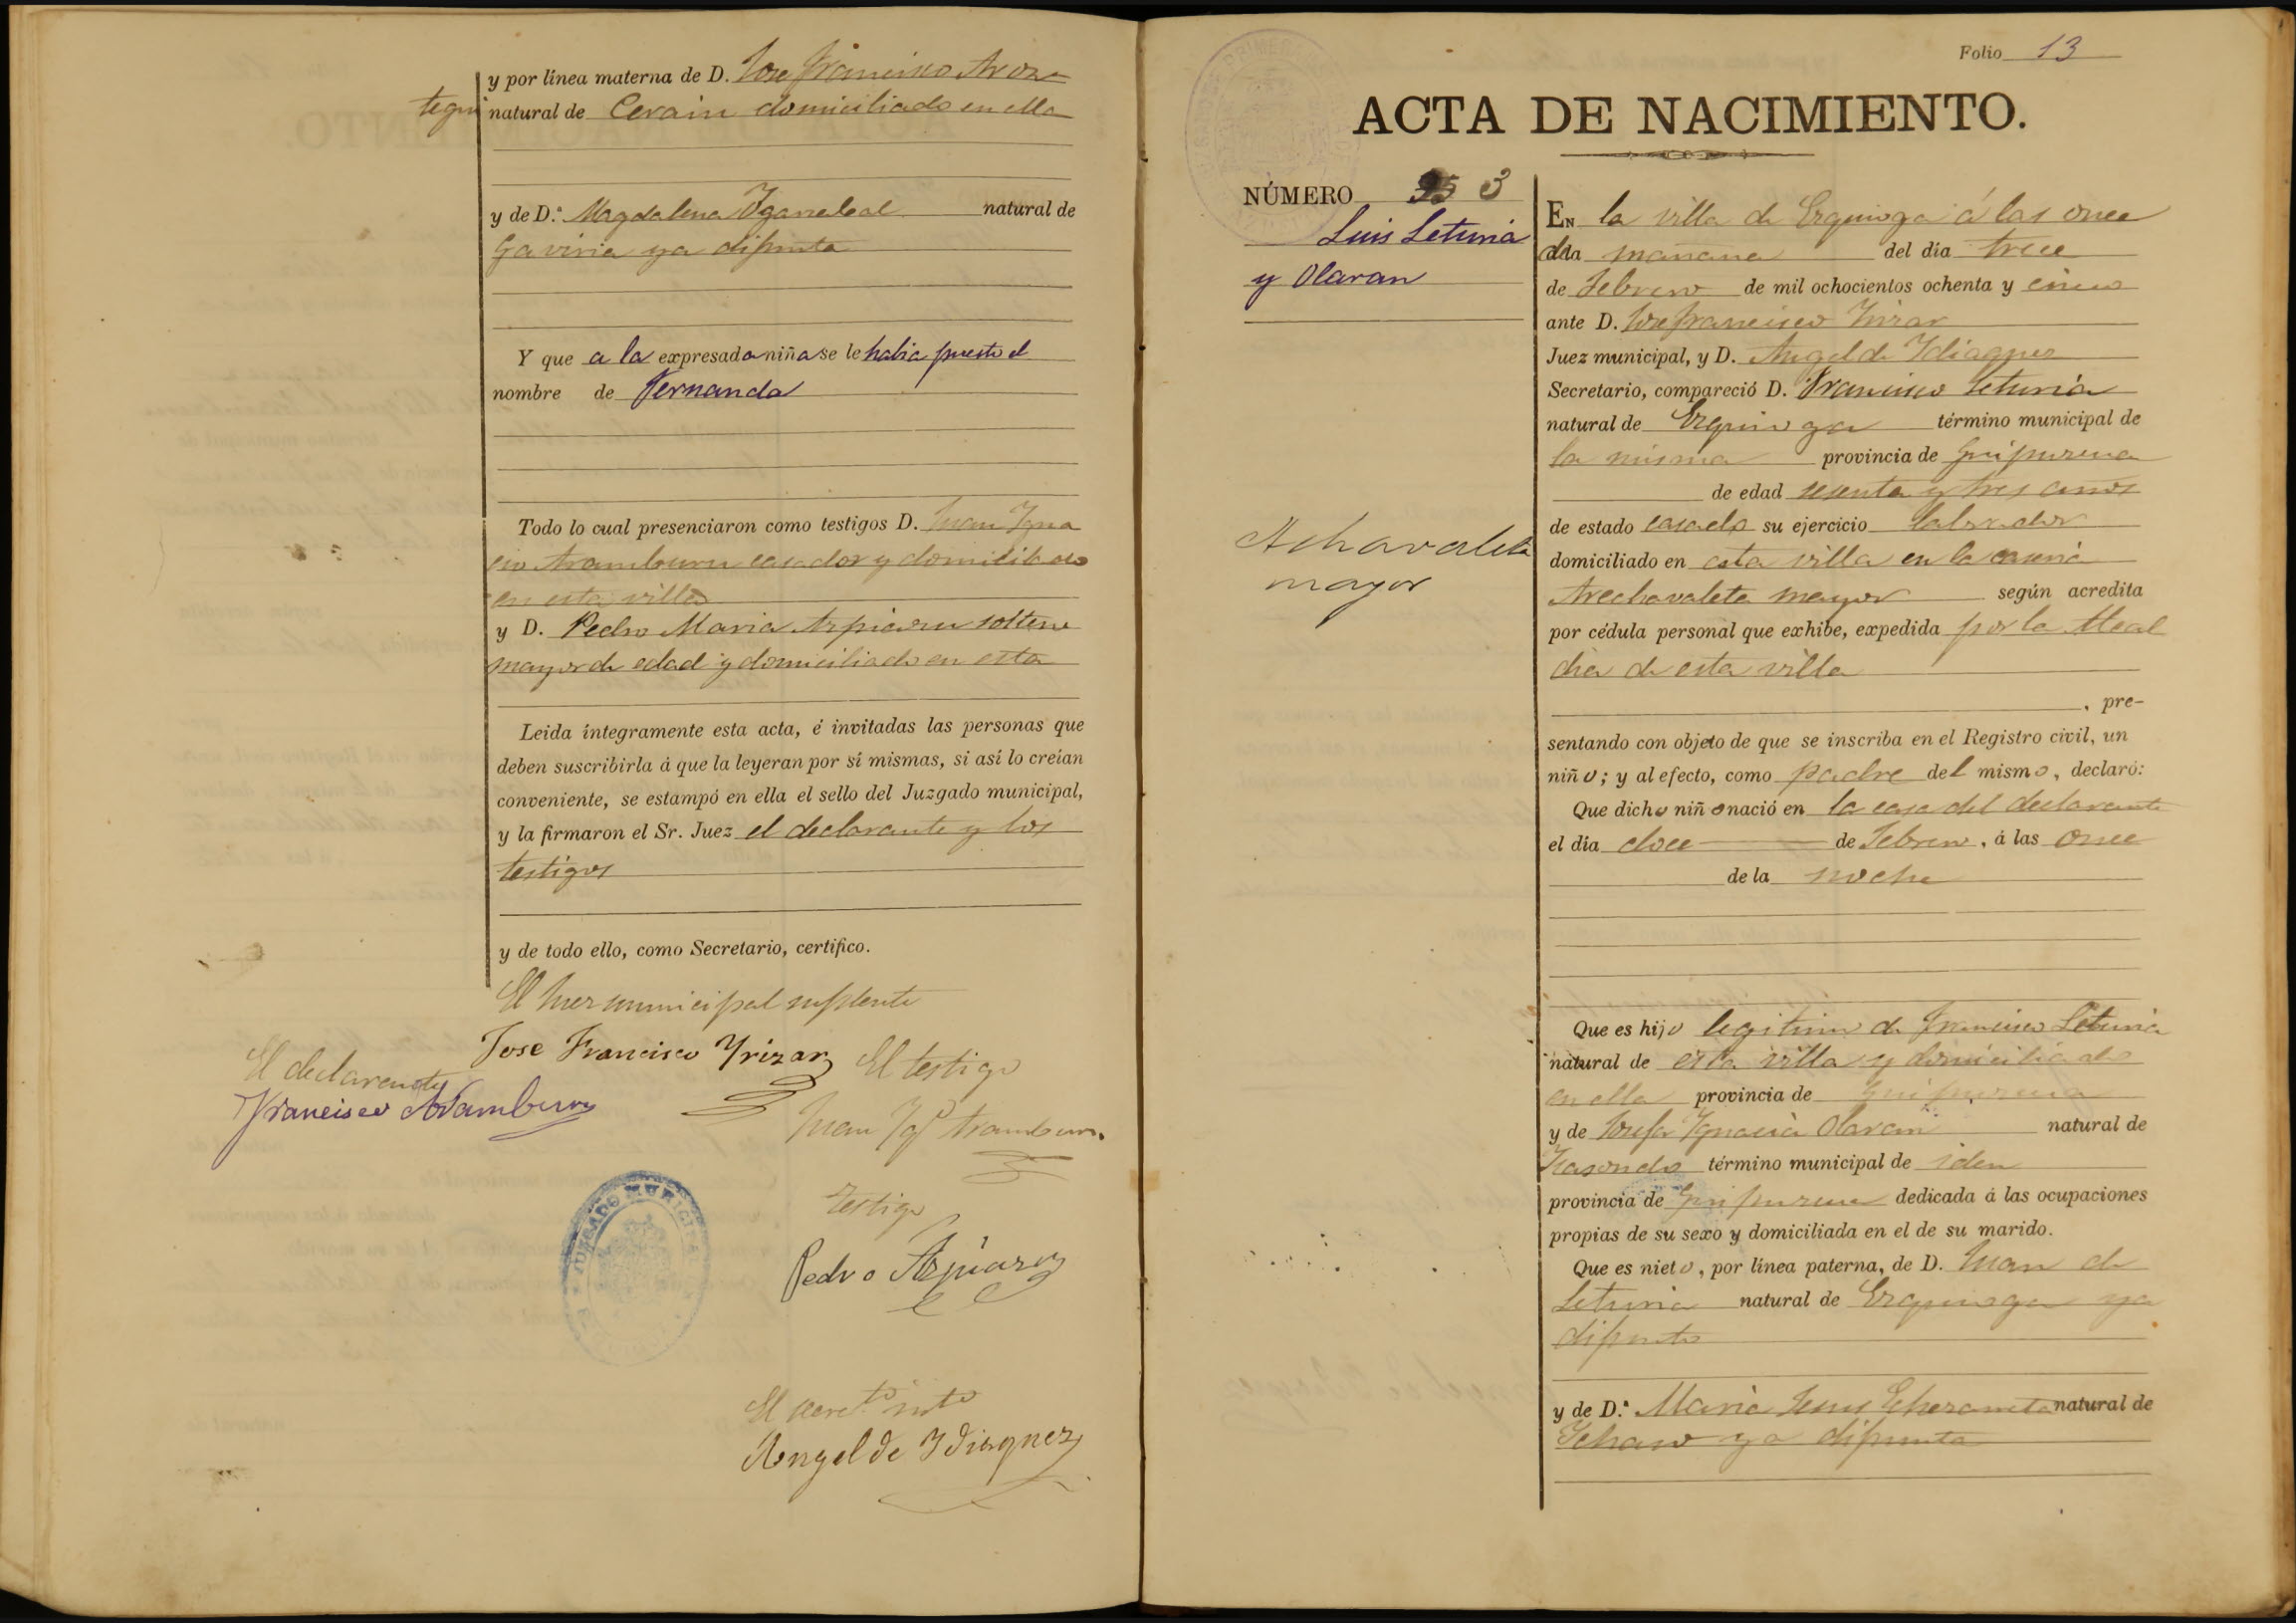 y por línea materna de D. Jose Francisco Aroz
tegui natural de Cerain domiciliado en ella
y de D.ª Magdalena natural de
Gaviria ya difunta
Y que a la expresada niña se le habia puesto el
nombre de Fernanda
Todo lo cual presenciaron como testigos D. Juan Igna
cio Aramburu casado y domiciliado
en esta villa
y D. Pedro Maria Azpiazu soltero
mayor de edad y domiciliado en esta
Leida íntegramente esta acta, é invitadas las personas que
deben suscribirla á que la leyeran por sí mismas, si así lo creían
conveniente, se estampó en ella el sello del Juzgado municipal,
y la firmaron el Sr. Juez el declarante y los
testigos
y de todo ello, como Secretario, certifico.
El Juez municipal suplente
Jose Francisco Yrizar
El declarante
Francisco Aramburu
El testigo
Juan Ygº Aramburu
Testigo
Pedro Azpiazu
JUZGADO MUNICIPAL
El secretº intº
Angel de Ydiaquez
Folio 13
ACTA DE NACIMIENTO.
NÚMERO 3
Luis Leturia
y Olaran
Achavaleta
mayor
EN la villa de Ezquioga á las once
de la mañana del día trece
de Febrero de mil ochocientos ochenta y cinco
ante D. Jose Francisco Yrizar
Juez municipal, y D. Angel de Ydiaquez
Secretario, compareció D. Francisco Leturia
natural de Ezquioga término municipal de
la misma provincia de Guipuzcoa
de edad sesenta y tres años
de estado casado su ejercicio labrador
domiciliado en esta villa en la caseria
Arechavaleta mayor según acredita
por cédula personal que exhibe, expedida por la Alcal
dia de esta villa
, pre-
sentando con objeto de que se inscriba en el Registro civil, un
niño; y al efecto, como padre del mismo, declaró:
Que dicho niño nació en la casa del declarante
el día doce de Febrero, á las once
de la noche
Que es hijo legitimo de Francisco Leturia
natural de esta villa y domiciliado
en ella provincia de Guipuzcoa
y de Josefa Ygnacia Olaran natural de
término municipal de iden
provincia de Guipuzcoa dedicada á las ocupaciones
propias de su sexo y domiciliada en el de su marido.
Que es nieto, por línea paterna, de D. Juan de
Leturia natural de Ezquioga ya
difunto
y de D.ª Maria Jesus natural de
Ychaso ya difunta